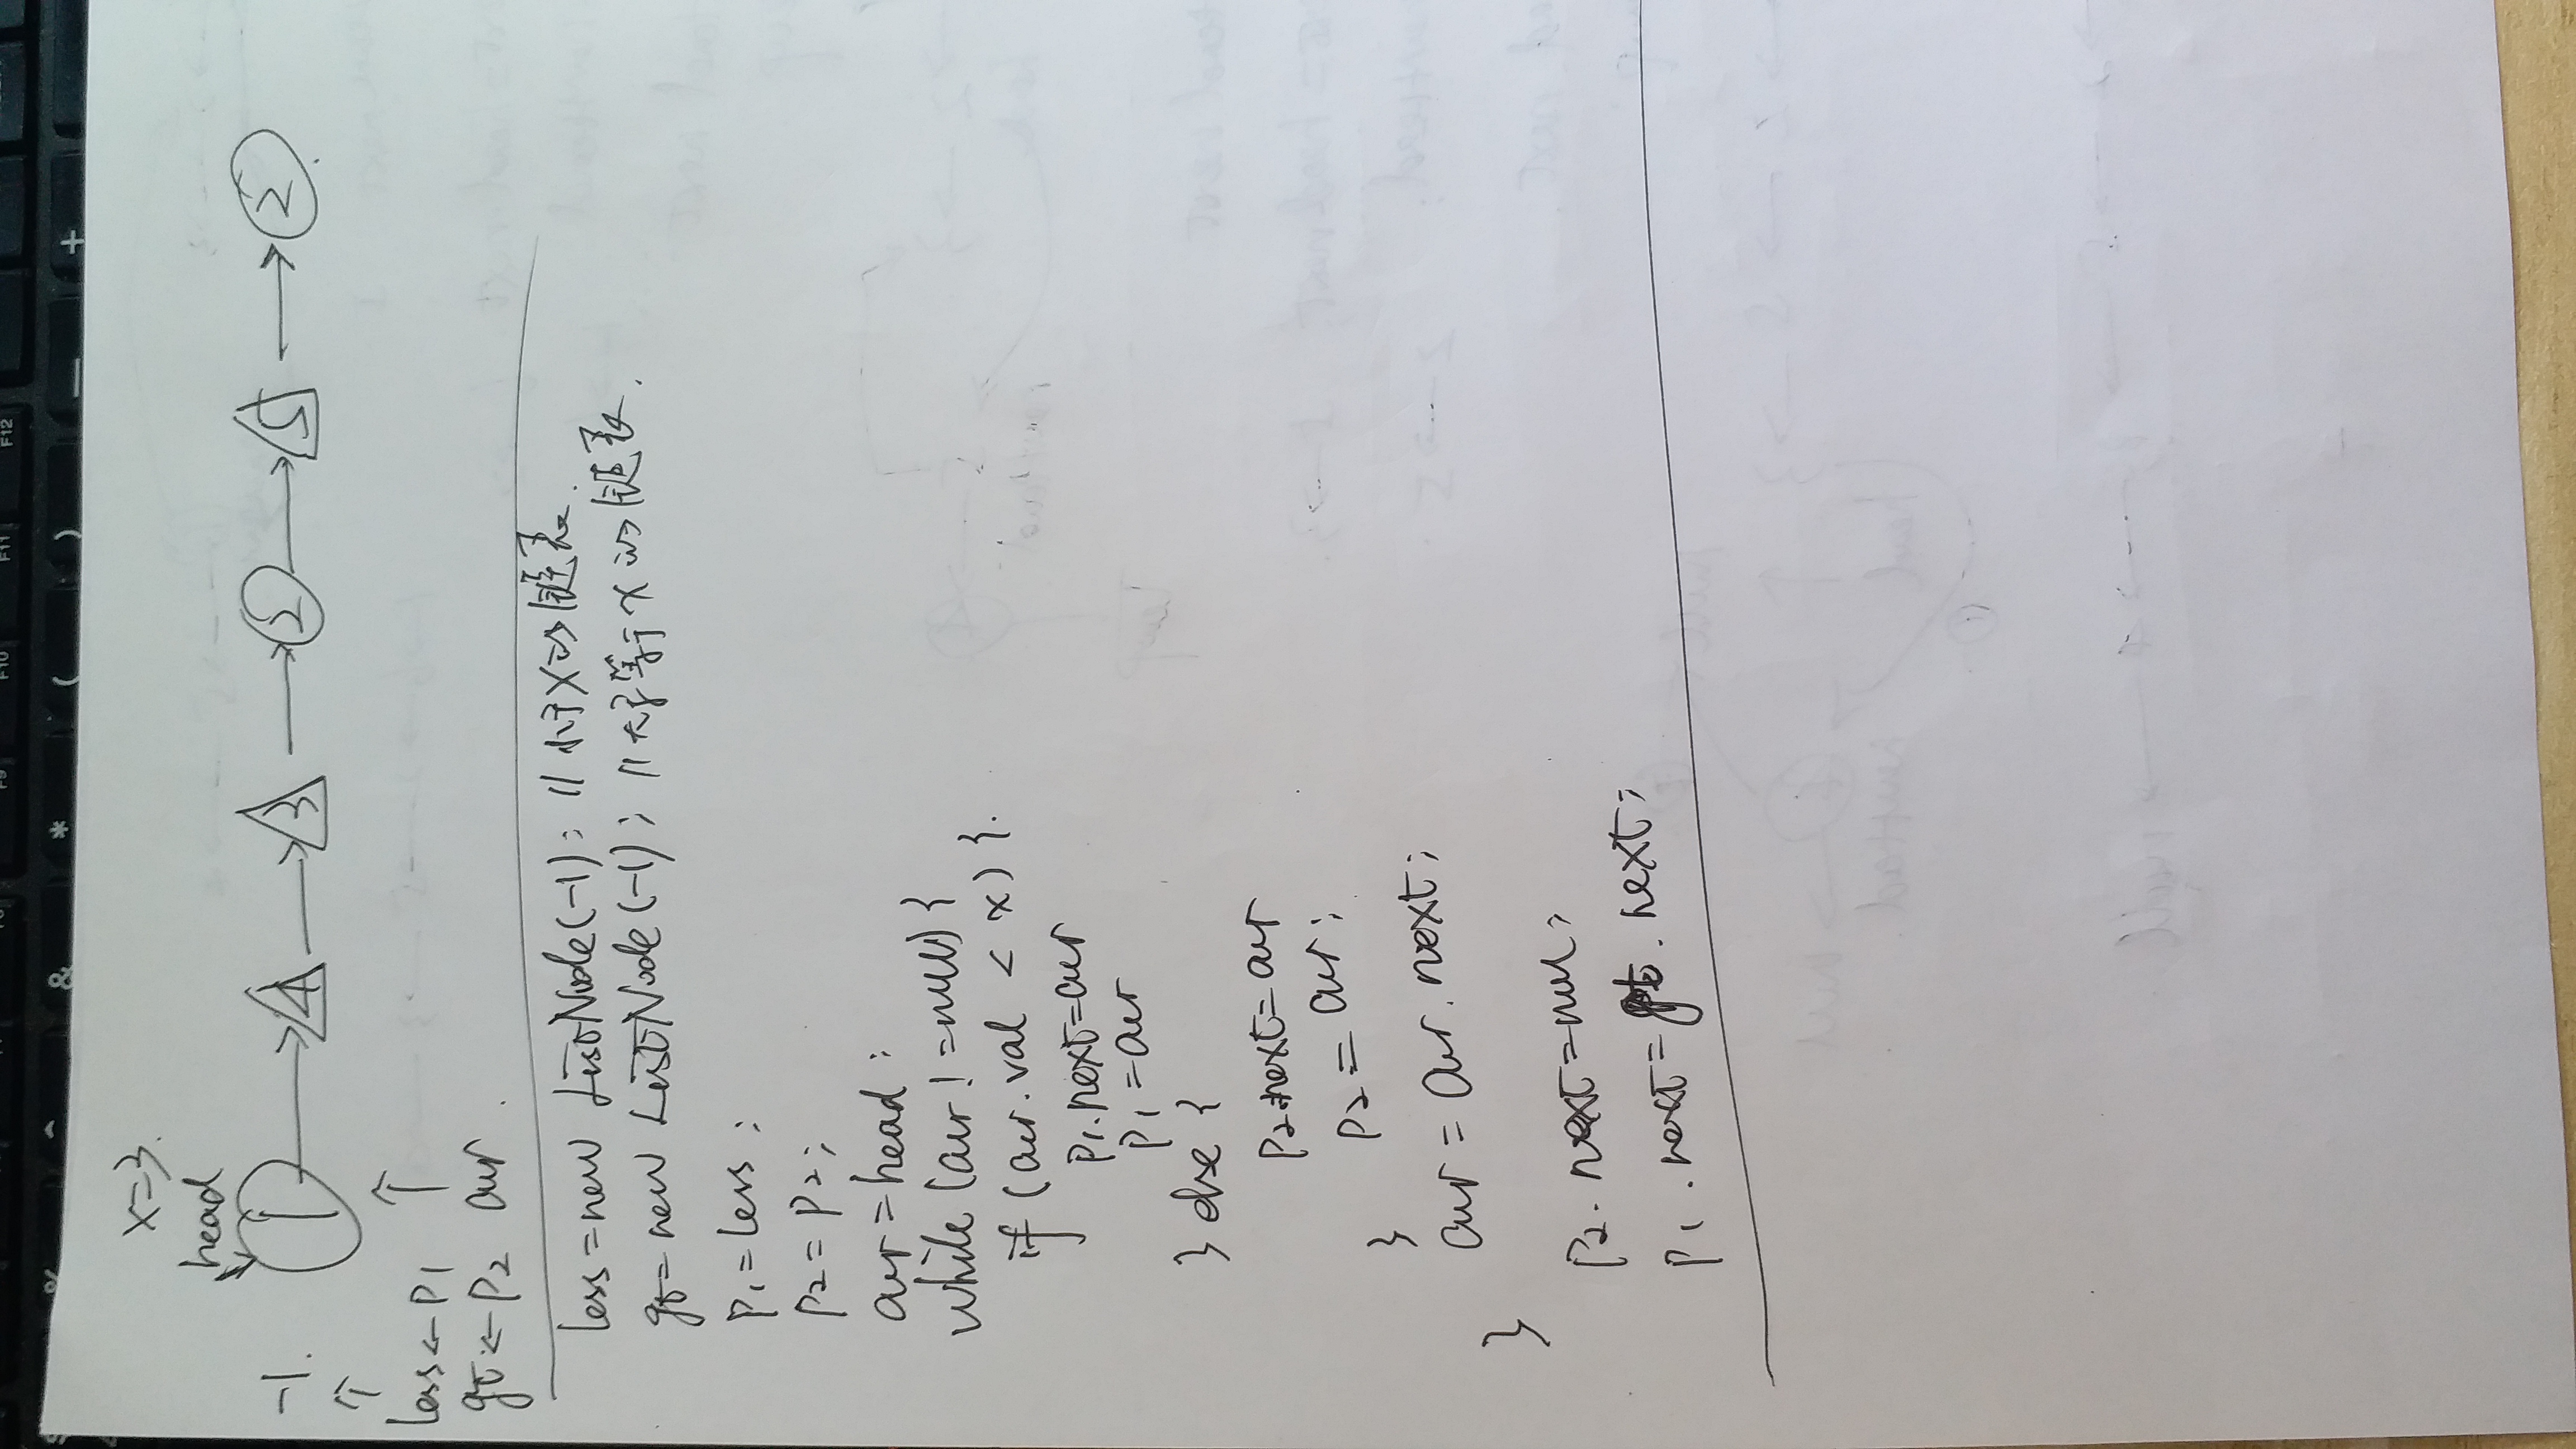 F9 F10 F11 F12
% ^ & * ( ) — +
x=3.
head
1 → 4 → 3 → 2 → 5 → 2
-1.
↑ ↑
less ← p1
gt ← p2 cur
less = new ListNode(-1); // 小于x的链表.
gt = new ListNode(-1); // 大于等于x的链表.
p1 = less;
p2 = p2;
cur = head;
while (cur != null) {
if (cur.val < x) {.
p1.next = cur
p1 = cur
} else {
p2.next = cur
p2 = cur;
}
cur = cur.next;
}
p2.next = null;
p1.next = gt.next;